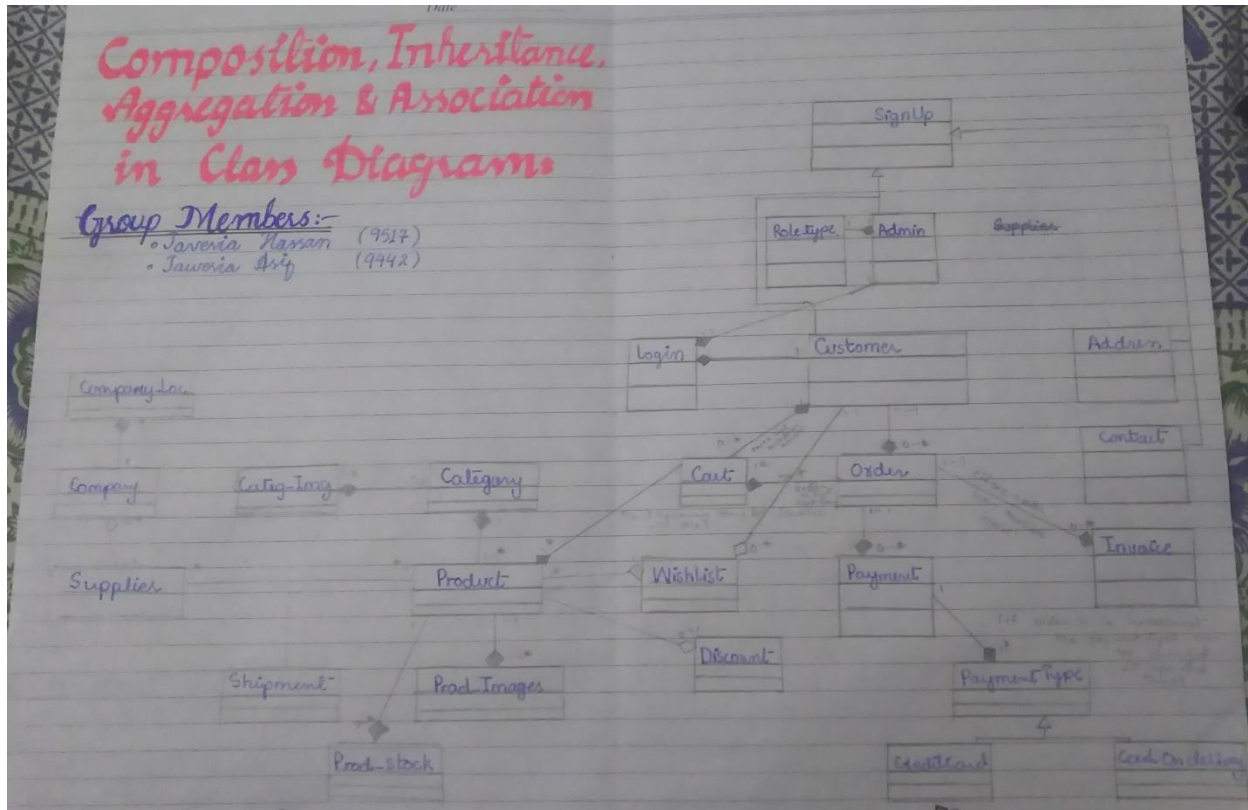 Date
Composition, Inheritance,
Aggregation & Association
in Class Diagram.
Group Members:-
• Javeria Hassan (9517)
• Jaweria Asif (9442)
SignUp
Roletype
Admin
Supplier
Login
Customer
Address
Company_Loc
Contact
Company
Categ-Img
Category
Cart
Order
Invoice
Supplier
Product
WishList
Payment
Discount
Shipment
Prod_Images
Payment Type
Prod_stock
CreditCard
Cash On delivery